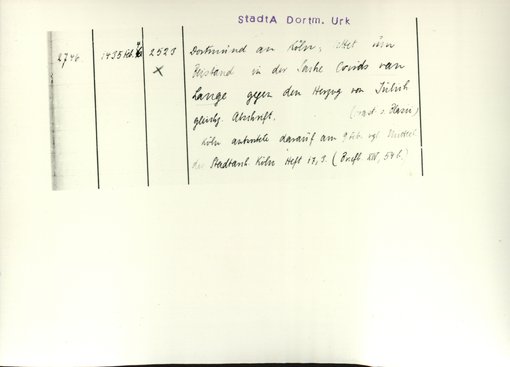 StadtA Dortm. Urk
2746. 1435 Feb. 2523 Dortmund an Köln: bittet um
× Beistand in der Sache Cords van
Lange gegen den Herzog von Jülich
gleichz. Abschrift.
Köln antwortete darauf am 9 Feb. vgl. Mitteil.
der Stadtarch. Köln Heft 13,